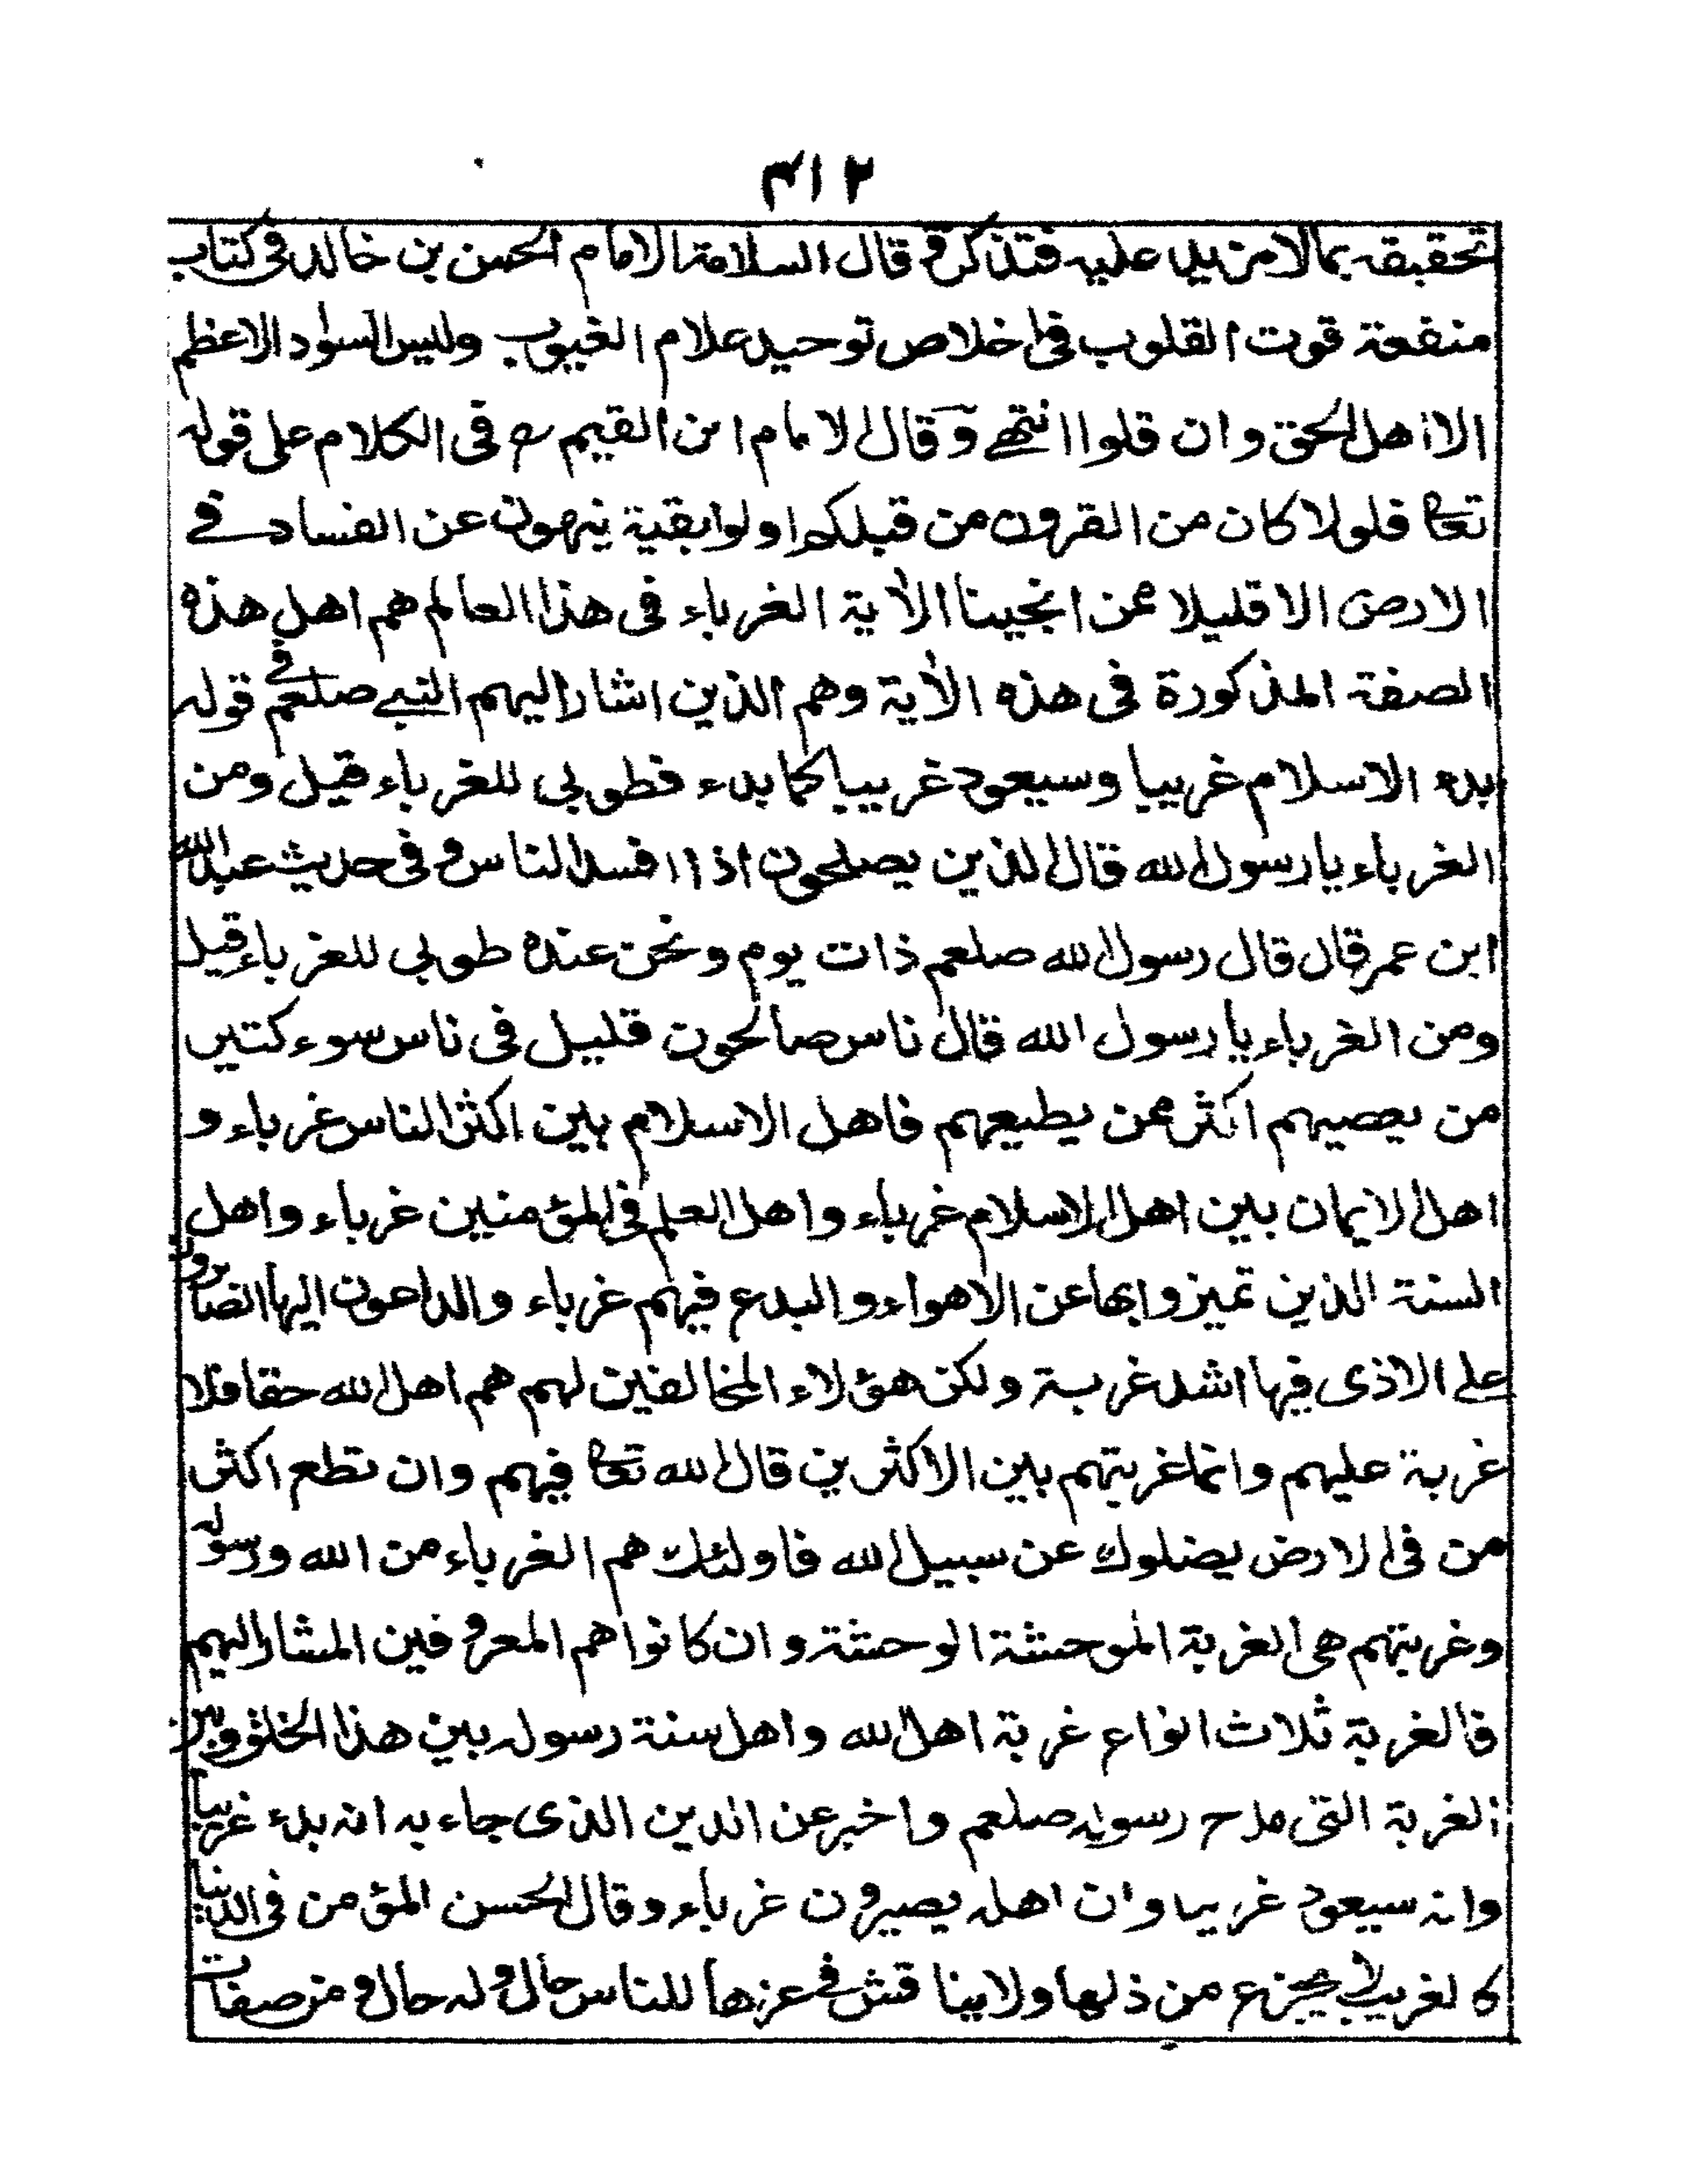 ٢١٣
تحقيقه بمالامزيد عليه فتذكر و قال السلامة الامام الحسن بن خالد فى كتاب
منفعة قوت القلوب فى اخلاص توحيد علام الغيوب وليس السواد الاعظم
الا اهل الحق وان قلوا انتهے وقال الامام ابن القيم رح فى الكلام على قوله
تعالى فلولا كان من القرون من قبلكم اولوا بقية ينهون عن الفساد فے
الارض الا قليلا ممن انجينا الأية الغرباء فى هذا العالم هم اهل هذه
الصفة المذكورة فى هذه الأية وهم الذين اشار اليهم النبے صلعم فى قوله
بدء الاسلام غريبا وسيعود غريبا كما بدء فطوبى للغرباء قيل ومن
الغرباء يا رسول الله قال الذين يصلحون اذا افسد الناس و فى حديث عبدالله
ابن عمر قال قال رسول الله صلعم ذات يوم ونحن عنده طوبى للغرباء قيل
ومن الغرباء يا رسول الله قال ناس صالحون قليل فى ناس سوء كثير
من يعصيهم اكثر ممن يطيعهم فاهل الاسلام بين اكثر الناس غرباء و
اهل الايمان بين اهل الاسلام غرباء واهل العلم فى المؤمنين غرباء واهل
السنة الذين تميزوا بها عن الاهواء والبدع فيهم غرباء والداعون اليها الصابرون
على الاذى فيها اشد غربة ولكن هؤلاء المخالفين لهم هم اهل الله حقا فلا
غربة عليهم وانما غربتهم بين الاكثرين قال الله تعالى فيهم وان تطع اكثر
من فى الارض يضلوك عن سبيل الله فاولئك هم الغرباء من الله ورسوله
وغربتهم هى الغربة الموحشة الوحشة وان كانوا هم المعروفين المشار اليهم
فالغربة ثلاث انواع غربة اهل الله واهل سنة رسوله بين هذا الخلق وبين
الغربة التى مدح رسوله صلعم واخبر عن الدين الذى جاء به انه بدء غريبا
وانه سيعود غريبا وان اهله يصيرون غرباء وقال الحسن المؤمن فى الدنيا
كالغريب لا يجزع من ذلها ولا ينافش فے عزها للناس حال وله حال و من صفات